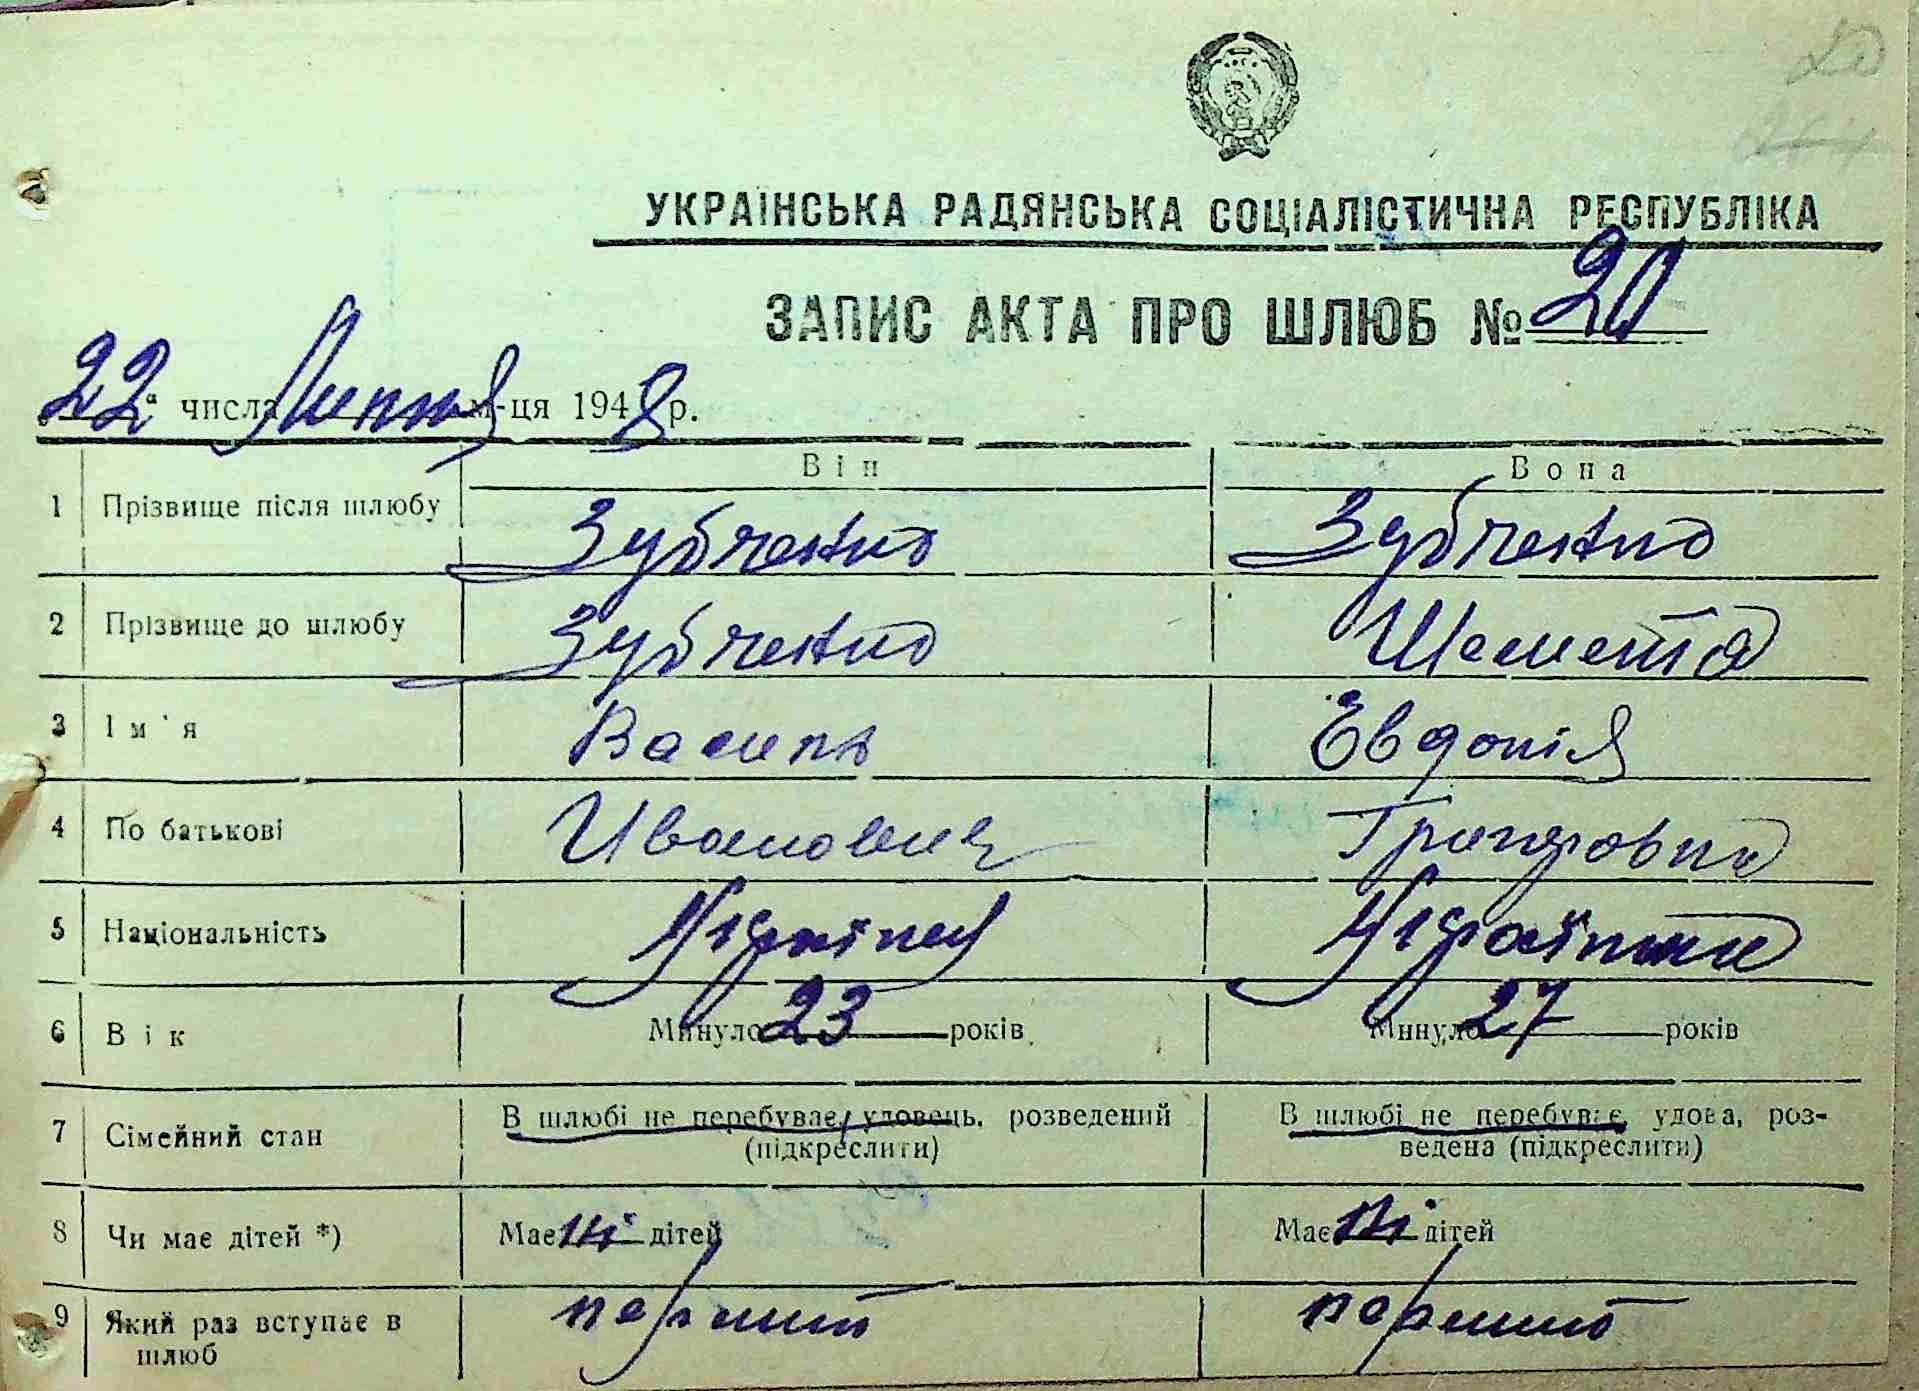 20
УКРАЇНСЬКА РАДЯНСЬКА СОЦІАЛІСТИЧНА РЕСПУБЛІКА
ЗАПИС АКТА ПРО ШЛЮБ № 20
22 числа Липня м-ця 1948 р.
Він Вона
1 Прізвище після шлюбу Зубченко Зубченко
2 Прізвище до шлюбу Зубченко Шемета
3 Ім'я Василь Евдокія
4 По батькові Иванович Григоровна
5 Національність Українец Українка
6 Вік Минуло 23 років Минуло 27 років
7 Сімейний стан В шлюбі не перебуває, удовець, розведений В шлюбі не перебуває, удова, роз-
(підкреслити) ведена (підкреслити)
8 Чи має дітей *) Має ні дітей Має ні дітей
9 Який раз вступає в перший перший
шлюб